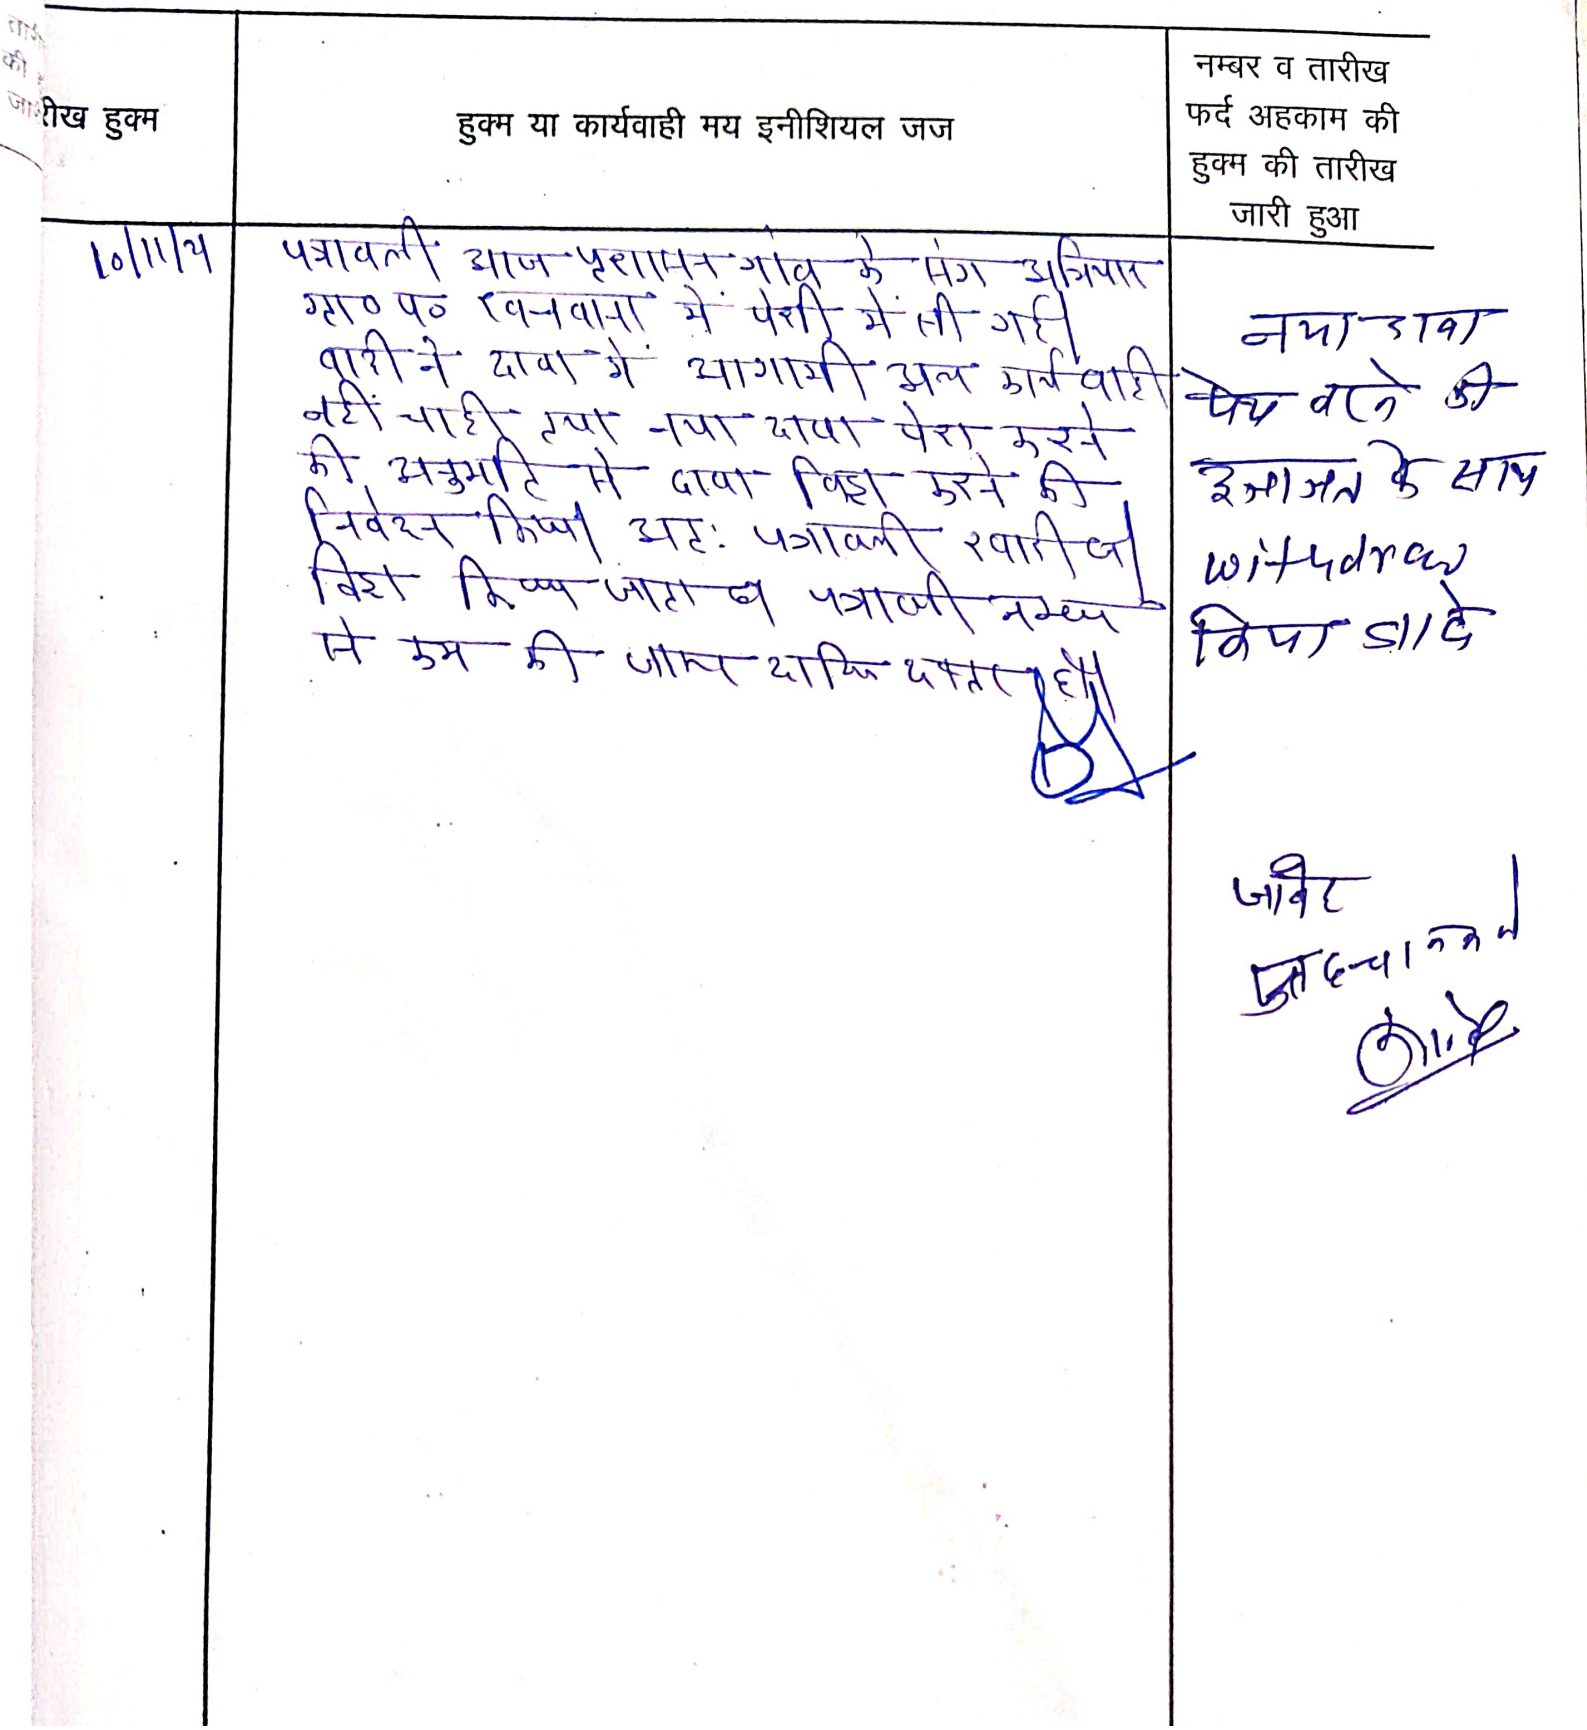 रीख हुक्म
हुक्म या कार्यवाही मय इनीशियल जज
नम्बर व तारीख
फर्द अहकाम की
हुक्म की तारीख
जारी हुआ
10/11/21
पत्रावली आज प्रशासन गांव के संग अभियान
ग्रा० प० में पेशी में ली गई।
वादी ने दावा में आगामी कार्यवाही
नहीं चाही तथा नया दावा पेश करने
की अनुमति से दावा विड्रा करने की
निवेदन किया। अतः पत्रावली खारीज
विड्रा किया जाता व पत्रावली नम्बर
से कम की जाकर दाखिल दफ्तर हो।
नया दावा
पेश करने की
इजाजत के साथ
withdraw
किया जावे